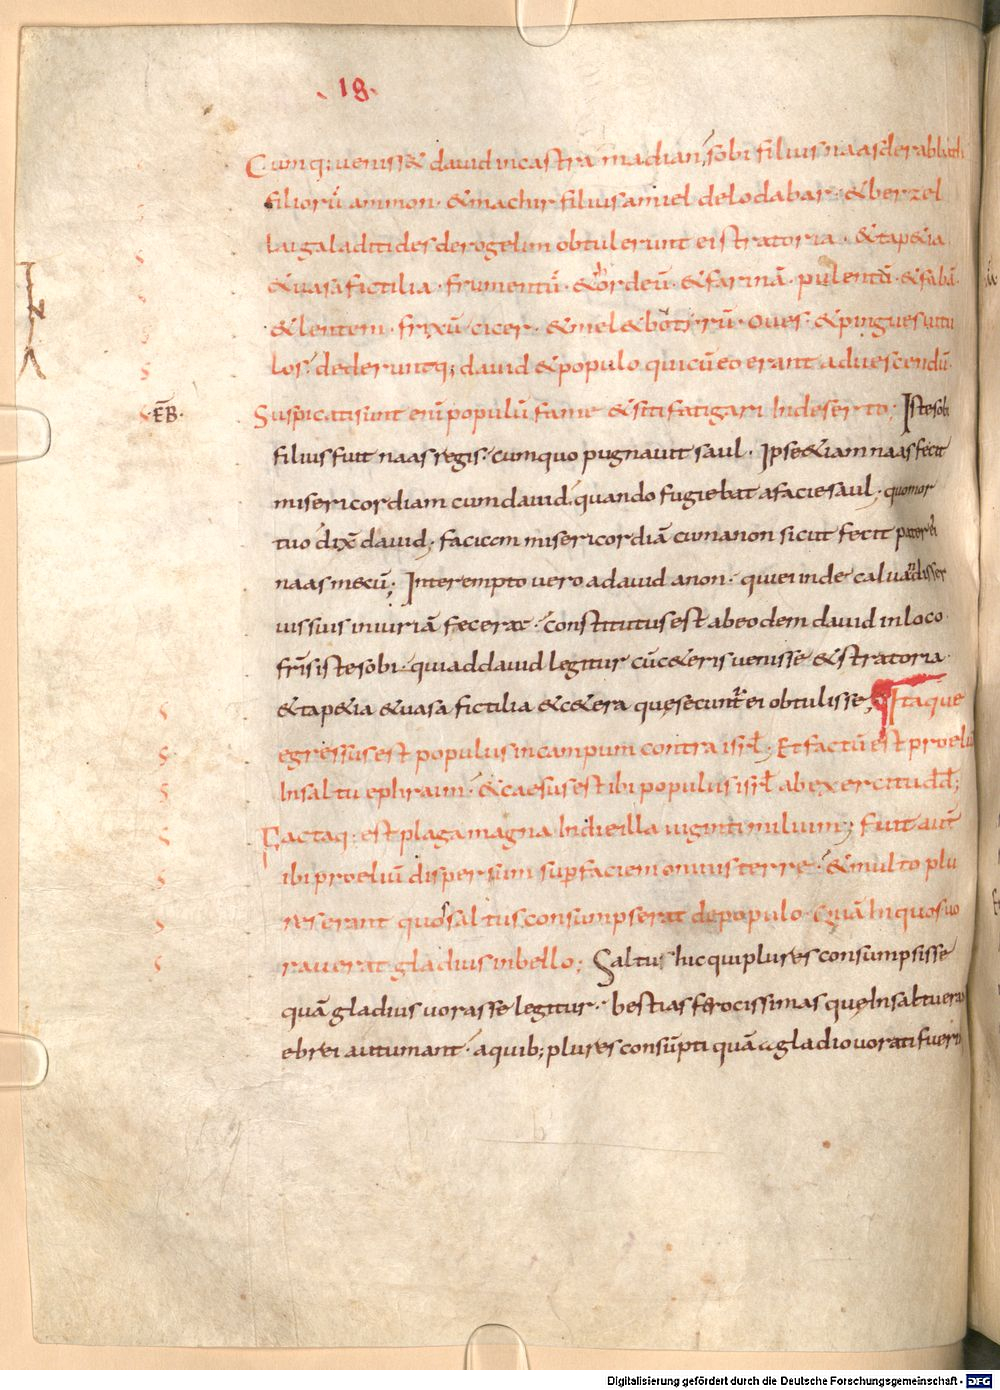 . 18 .
Cumq; ueniss& dauid incastra madian, sobi filius naas derabbath
filiorū ammon · & machir filius amiel delodabar · & berzel
lai galadities derogelim obtulerunt ei stratoria · & tap&ia
& uasa fictilia · frumentū · & ordeū · & farinā · pulentā · & fabā ·
· & lentem · frixū cicer · & mel & botirū · oues · & pingues uitu
los · dederuntq; dauid & populo qui cū eo erant aduescendū ·
·EB̄· Suspicati sunt enī populū fame & siti fatigari Indeserto; Iste sobi
filius fuit naas regis · cum quo pugnauit saul · Ipse & iam naas fecit
misericordiam cum dauid, quando fugiebat afacie saul · quo mor
tuo dix̄ dauid · faciam misericordiā cum anon sicut fecit pater ei
naas mecū; Interempto uero adauid anon · qui ei inde caluariā disser
uis suis iniuriā fecerat · constitutus est abeodem dauid in loco
fr̄is iste sobi · qui ad dauid legitur cū c&eris uenisse & stratoria ·
& tap&ia & uasa fictilia & c&era quę secunt̄ ei obtulisse; Itaque
egressus est populus incampum contra isrł; Et factū est proeliū
Insaltu ephraim · & caesus est ibi populus isrł ab exercitu dđ;
Factaq · est plaga magna Indie illa uiginti milium; Fuit aut̄
ibi proeliū dispersum sup faciem omnis terre · & multo plu
res erant quos saltus consumpserat depopulo · quā hi quos uo
rauerat gladius inbello; Saltus hic qui plures consumpsisse
quā gladius uorasse legitur · bestias ferocissimas quę Insaltu era
ebrei autumant · aquib; plures consūpti quā a gladio uorati fuer
Digitalisierung gefördert durch die Deutsche Forschungsgemeinschaft - DFG